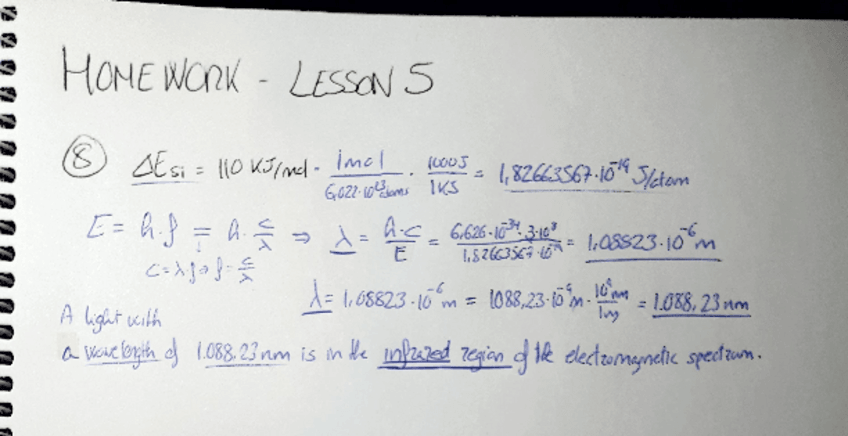 HOMEWORK - LESSON 5
⑧ ΔEsi = 110 KJ/mol · 1mol / 6,022·10²³atoms · 1000J / 1KJ = 1,82663567·10⁻¹⁹ J/atom
E = h·f = h · c/λ ⇒ λ = h·c / E = 6.626·10⁻³⁴·3·10⁸ / 1,82663567·10⁻¹⁹ = 1.08823·10⁻⁶ m
↓
c = λ·f ⇒ f = c/λ
λ = 1,08823·10⁻⁶ m = 1088,23·10⁻⁹ m · 10⁹ nm / 1m = 1.088,23 nm
A light with
a wavelength of 1.088,23 nm is in the infrared region of the electromagnetic spectrum.